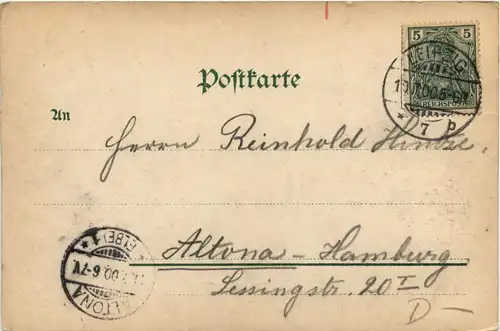 5 5
LEIPZIG
REICHSPOST
* 7 b
Postkarte
An
Herrn Reinhold Hintze,
Altona-Hamburg
Lessingstr. 20 I
D-
ALTONA
(ELBE) 1 *
00 6-7V